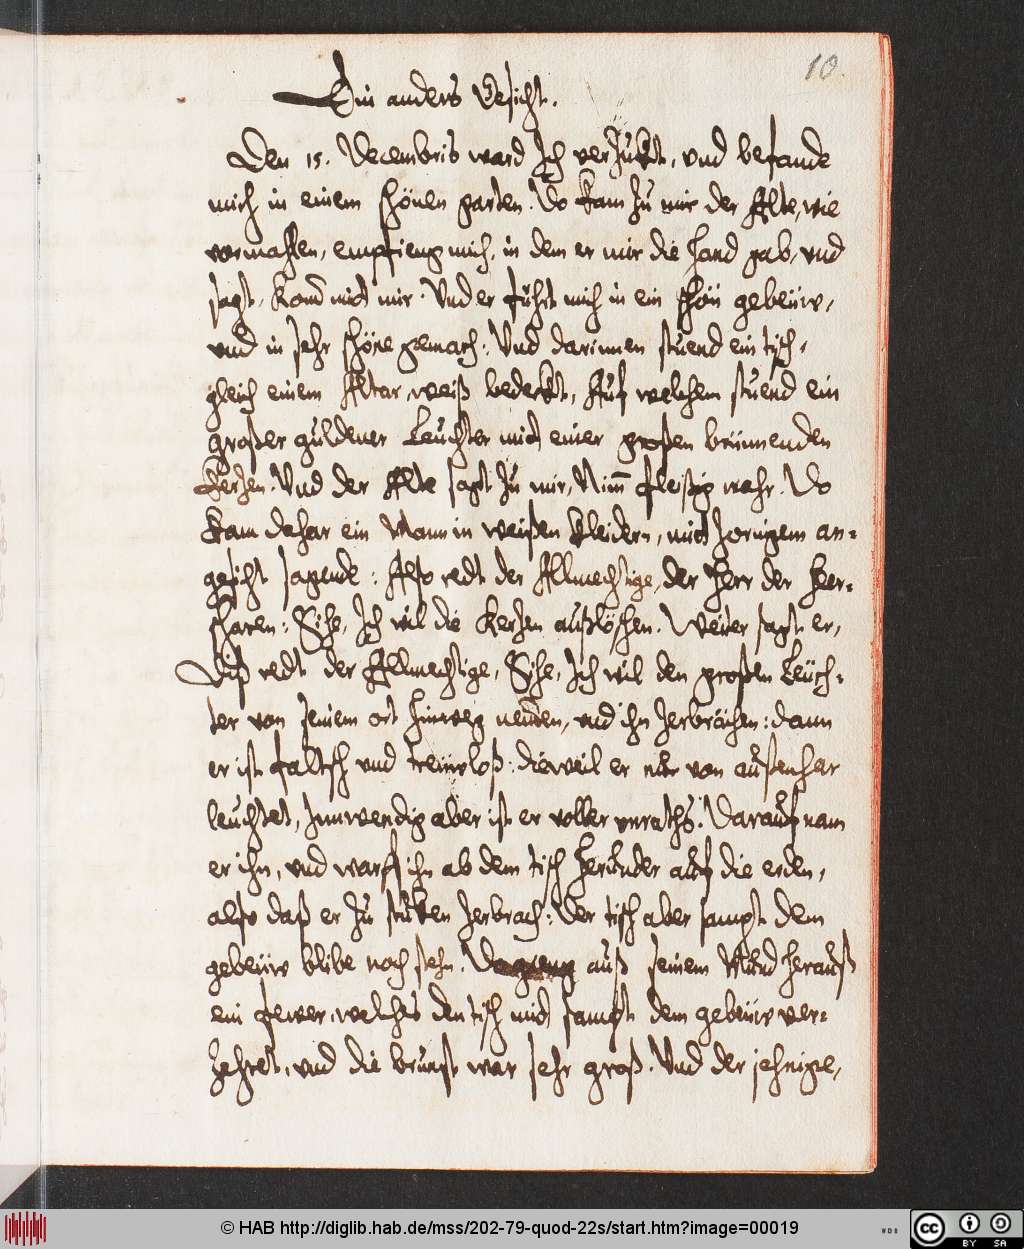 10.
Ein anders Gesicht.
Den 15. Decembris ward Ich verzukt, und befande
mich in einem schönen garten. Do kam zu mir der Alte, wie
vormassen, empfieng mich, in dem er mir die hand gab, und
sagt, komb mit mir. Und er führt mich in ein schön gebeüw,
und in sehr schöne gemach: Und darinnen stuend ein tisch,
gleich einem Altar, weiß bedekt, Auf welchem stuend ein
großer guldener Leuchter mit einer großen brünnenden
kerzen. Und der Alte sagt zu mir, Nim̄ fleißig wahr. Do
kam dahar ein Mann in weißen kleidern, mit zornigem an-
gesicht sagende: Also redt der Allmechtige, der Herr der Heer-
scharen: Sihe, Ich wil die kerzen außlöschen. Weiter sagt er,
Diß redt der Allmechtige, Sihe, Ich wil den großen Leüch-
ter von seinem ort hinweg nemmen, und ihn zerbrächen: dann
er ist faltsch und trewloß: dieweil er nur von außenhar
leuchtet, Innwendig aber ist er voller unraths. Darauf nam
er ihn, und warff ihn ab dem tisch herunder auf die erden,
also daß er zu stuken zerbrach: Der tisch aber sampt dem
gebeüw blibe noch stehn. Da gieng auß seinem Mund herauß
ein fewer, welches den tisch mit sampt dem gebeüw ver-
zehret, und die brunst war sehr groß. Und der jehnige,
© HAB http://diglib.hab.de/mss/202-79-quod-22s/start.htm?image=00019
WDB
cc
BY SA